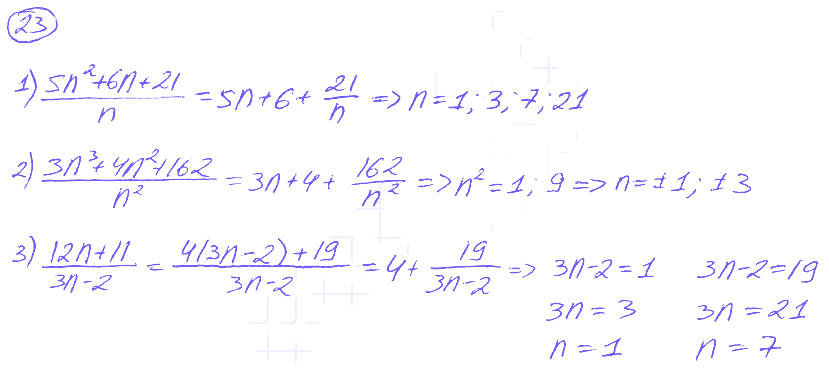 23
1) (5n²+6n+21)/n = 5n+6+ 21/n => n=1; 3; 7; 21
2) (3n³+4n²+162)/n² = 3n+4+ 162/n² => n²=1; 9 => n=±1; ±3
3) (12n+11)/(3n-2) = (4(3n-2)+19)/(3n-2) = 4+ 19/(3n-2) => 3n-2=1 3n-2=19
3n=3 3n=21
n=1 n=7